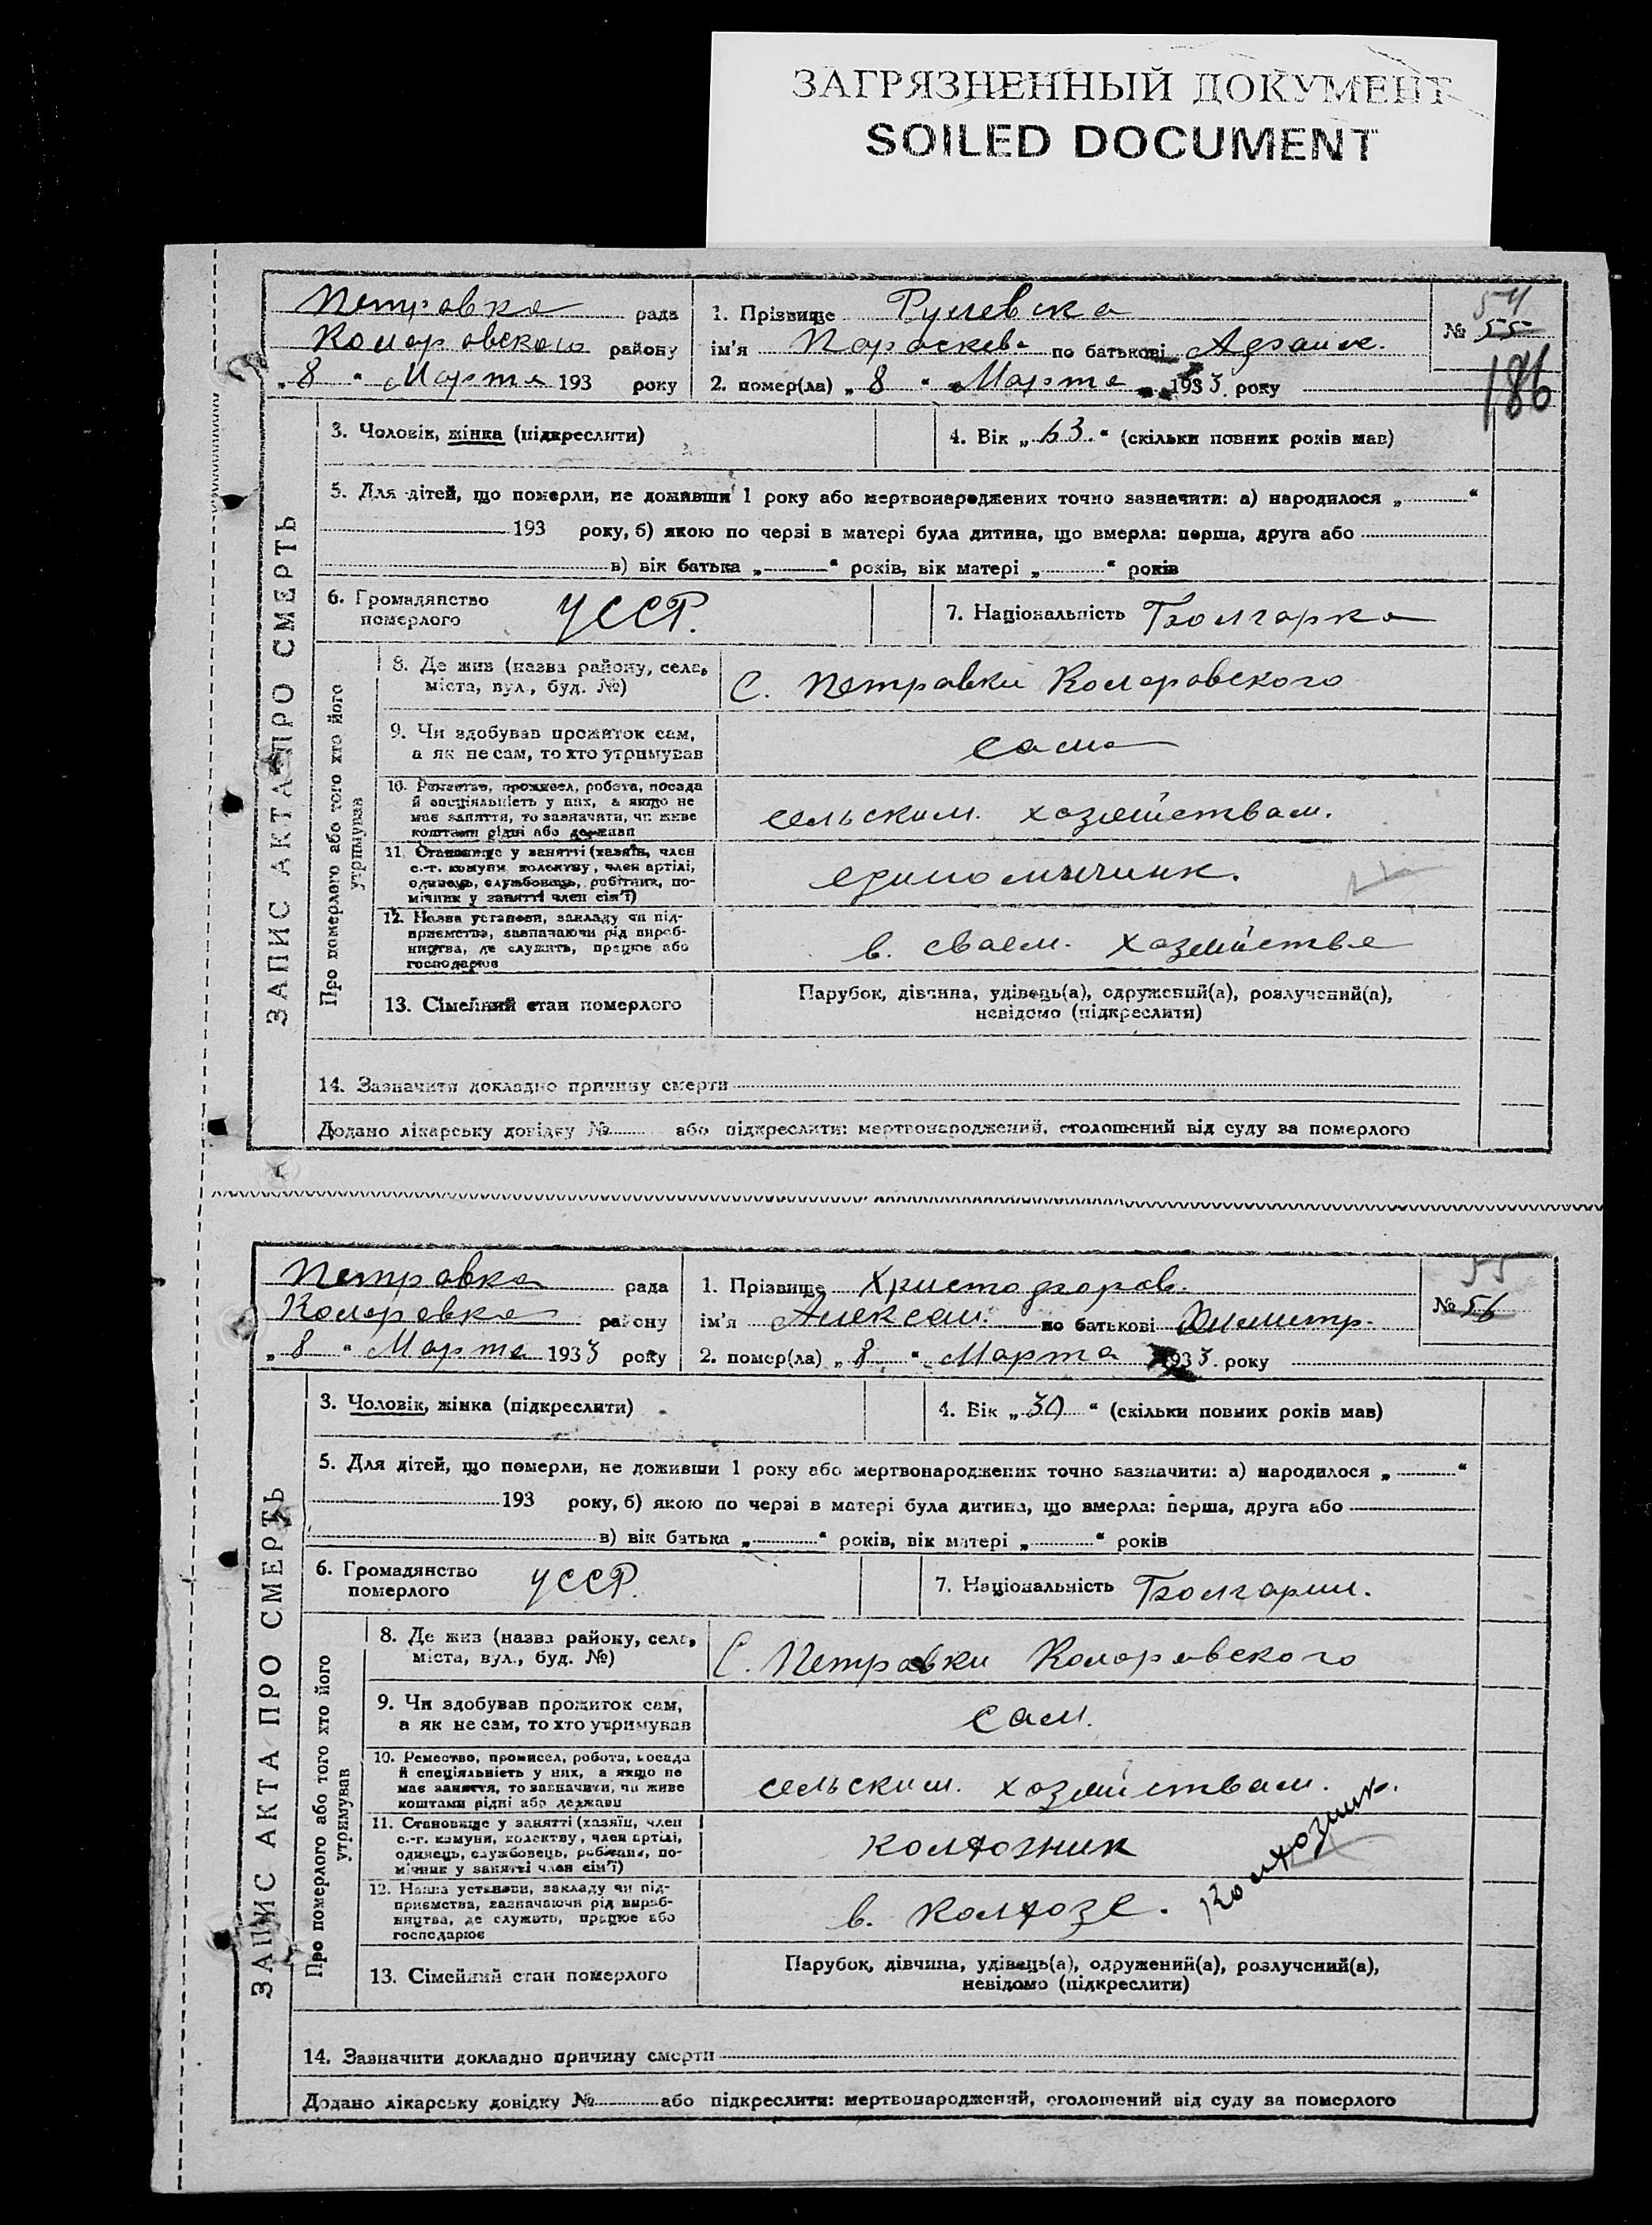 ЗАГРЯЗНЕННЫЙ ДОКУМЕНТ
SOILED DOCUMENT
ЗАПИС АКТА ПРО СМЕРТЬ
Петровка рада
Коларовского району
„8“ Марта 193 року
1. Прізвище
ім'я Параскева по батькові
2. помер(ла) „8“ Марта 1933 року
54
№ 55
186
3. Чоловік, жінка (підкреслити)
4. Вік „63“ (скільки повних років мав)
5. Для дітей, що померли, не доживши 1 року або мертвонароджених точно зазначити: а) народилося „ “
193 року, б) якою по черзі в матері була дитина, що вмерла: перша, друга або
в) вік батька „ “ років, вік матері „ “ років
6. Громадянство
померлого
УССР.
7. Національність Болгарка
Про померлого або того хто його
утримував
8. Де жив (назва району, села,
міста, вул., буд. №)
С. Петровки Коларовского
9. Чи здобував прожиток сам,
а як не сам, то хто утримував
сама
10. Ремество, промисел, робота, посада
й спеціяльність у них, а якщо не
має заняття, то зазначити, чи живе
коштами рідні або держави
сельским. хозяйствам.
11. Становище у занятті (хазяїн, член
с.-г. комуни, колективу, член артілі,
одинець, службовець, робітник, по-
мічник у занятті член сім'ї)
12. Назва установи, закладу чи під-
приємства, зазначаючи рід вироб-
ництва, де служить, працює або
господарює
в. сваем. хозяйстве
13. Сімейний стан померлого
Парубок, дівчина, удівець(а), одружений(а), розлучений(а),
невідомо (підкреслити)
14. Зазначити докладно причину смерти
Додано лікарську довідку № або підкреслити: мертвонароджений, оголошений від суду за померлого
ЗАПИС АКТА ПРО СМЕРТЬ
Петровка рада
Коларовка району
„8“ Марта 1933 року
1. Прізвище Христофоров.
ім'я Алексан. по батькові Димитр.
2. помер(ла) „8“ Марта 1933. року
55
№ 56
3. Чоловік, жінка (підкреслити)
4. Вік „30“ (скільки повних років мав)
5. Для дітей, що померли, не доживши 1 року або мертвонароджених точно зазначити: а) народилося „ “
193 року, б) якою по черзі в матері була дитина, що вмерла: перша, друга або
в) вік батька „ “ років, вік матері „ “ років
6. Громадянство
померлого
УССР.
7. Національність Болгарин.
Про померлого або того хто його
утримував
8. Де жив (назва району, села,
міста, вул., буд. №)
С. Петровки Коларовского
9. Чи здобував прожиток сам,
а як не сам, то хто утримував
сам.
10. Ремество, промисел, робота, посада
й спеціяльність у них, а якщо не
має заняття, то зазначити, чи живе
коштами рідні або держави
сельским. хозяйствам.
11. Становище у занятті (хазяїн, член
с.-г. комуни, колективу, член артілі,
одинець, службовець, робітник, по-
мічник у занятті член сім'ї)
колхозник
колхозник.
12. Назва установи, закладу чи під-
приємства, зазначаючи рід вироб-
ництва, де служить, працює або
господарює
в. колхозе.
13. Сімейний стан померлого
Парубок, дівчина, удівець(а), одружений(а), розлучений(а),
невідомо (підкреслити)
14. Зазначити докладно причину смерти
Додано лікарську довідку № або підкреслити: мертвонароджений, оголошений від суду за померлого